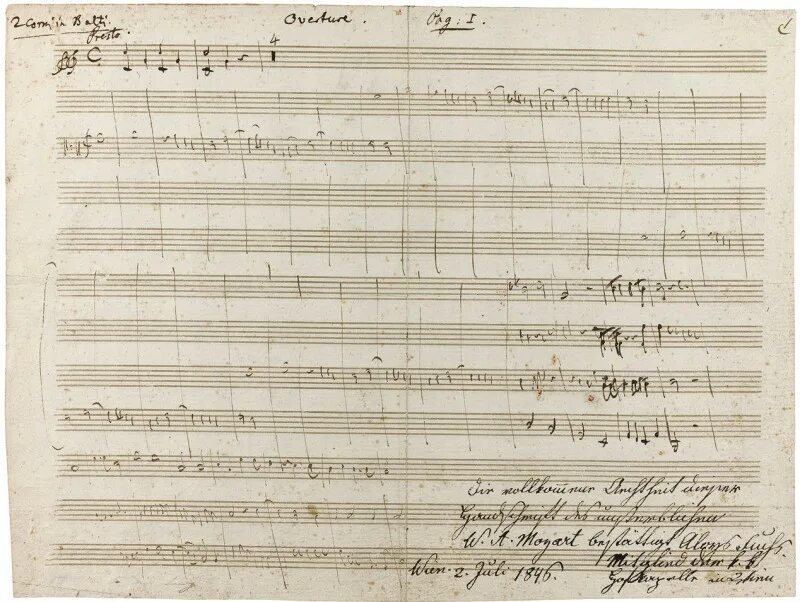 2 Corni in B alti.
Overture.
Pag: I.
Presto.
4
Die vollkommene Aechtheit dieser
Handschrift des unsterblichen
W. A. Mozart bestättigt Aloys Fuchs.
Mitglied der k. k.
Wien. 2. Juli 1846.
Hofkapelle in Wien